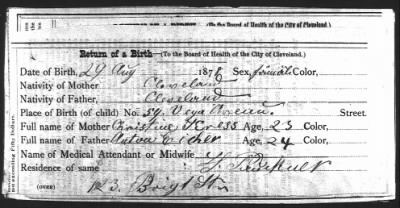 (To the Board of Health of the City of Cleveland.)
Return of a Birth—(To the Board of Health of the City of Cleveland.)
Date of Birth, 29 Aug 1878 Sex, female Color,
Nativity of Mother Cleveland
Nativity of Father, Cleveland
Place of Birth (of child) No. 59. Street.
Full name of Mother Christine Kress Age, 23 Color,
Full name of Father Anton Eicher Age, 24 Color,
Name of Medical Attendant or Midwife
Residence of same
(OVER) 123. Bright Str